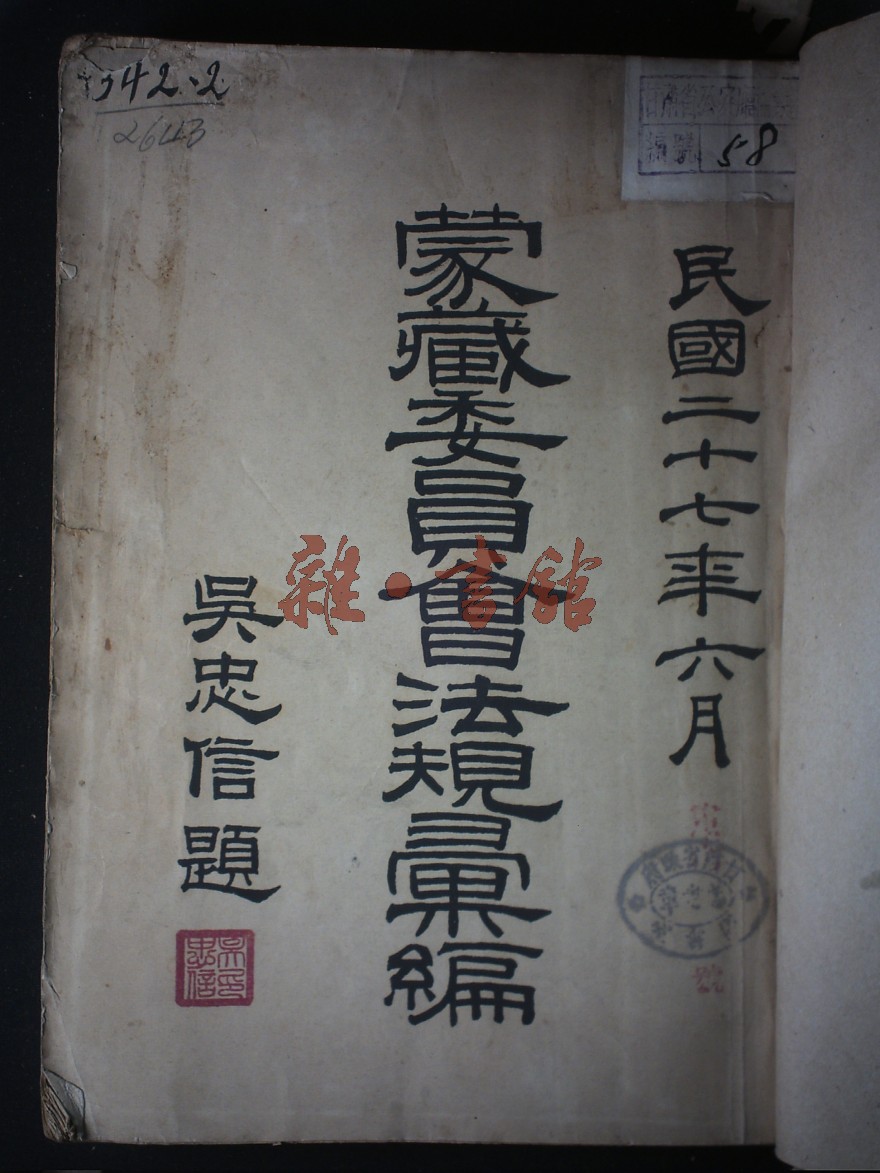 民國二十七年六月
蒙藏委員會法規彙編
吳忠信題
吳忠信印
雜·書館
342.2
2643
編號 58
號